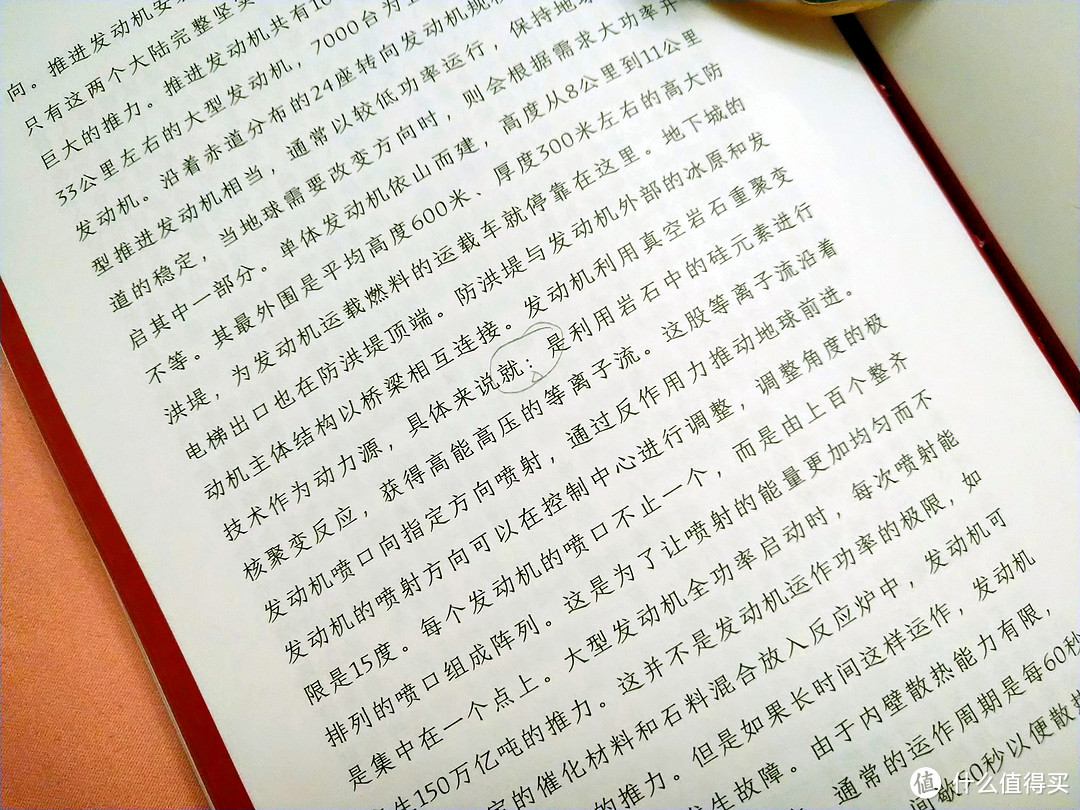 向。推进发动机安
只有这两个大陆完整坚实
巨大的推力。推进发动机共有10
33公里左右的大型发动机，7000台为
发动机。沿着赤道分布的24座转向发动机规格
型推进发动机相当，通常以较低功率运行，保持地球
道的稳定，当地球需要改变方向时，则会根据需求大功率开
启其中一部分。单体发动机依山而建，高度从8公里到11公里
不等。其最外围是平均高度600米、厚度300米左右的高大防
洪堤，为发动机运载燃料的运载车就停靠在这里。地下城的
电梯出口也在防洪堤顶端。防洪堤与发动机外部的冰原和发
动机主体结构以桥梁相互连接。发动机利用真空岩石重聚变
技术作为动力源，具体来说就：是利用岩石中的硅元素进行
核聚变反应，获得高能高压的等离子流。这股等离子流沿着
发动机喷口向指定方向喷射，通过反作用力推动地球前进。
发动机的喷射方向可以在控制中心进行调整，调整角度的极
限是15度。每个发动机的喷口不止一个，而是由上百个整齐
排列的喷口组成阵列。这是为了让喷射的能量更加均匀而不
是集中在一个点上。大型发动机全功率启动时，每次喷射能
生150万亿吨的推力。这并不是发动机运作功率的极限，如
定的催化材料和石料混合放入反应炉中，发动机可
的推力。但是如果长时间这样运作，发动机
生故障。由于内壁散热能力有限，
通常的运作周期是每60秒
0秒以便散
值 什么值得买